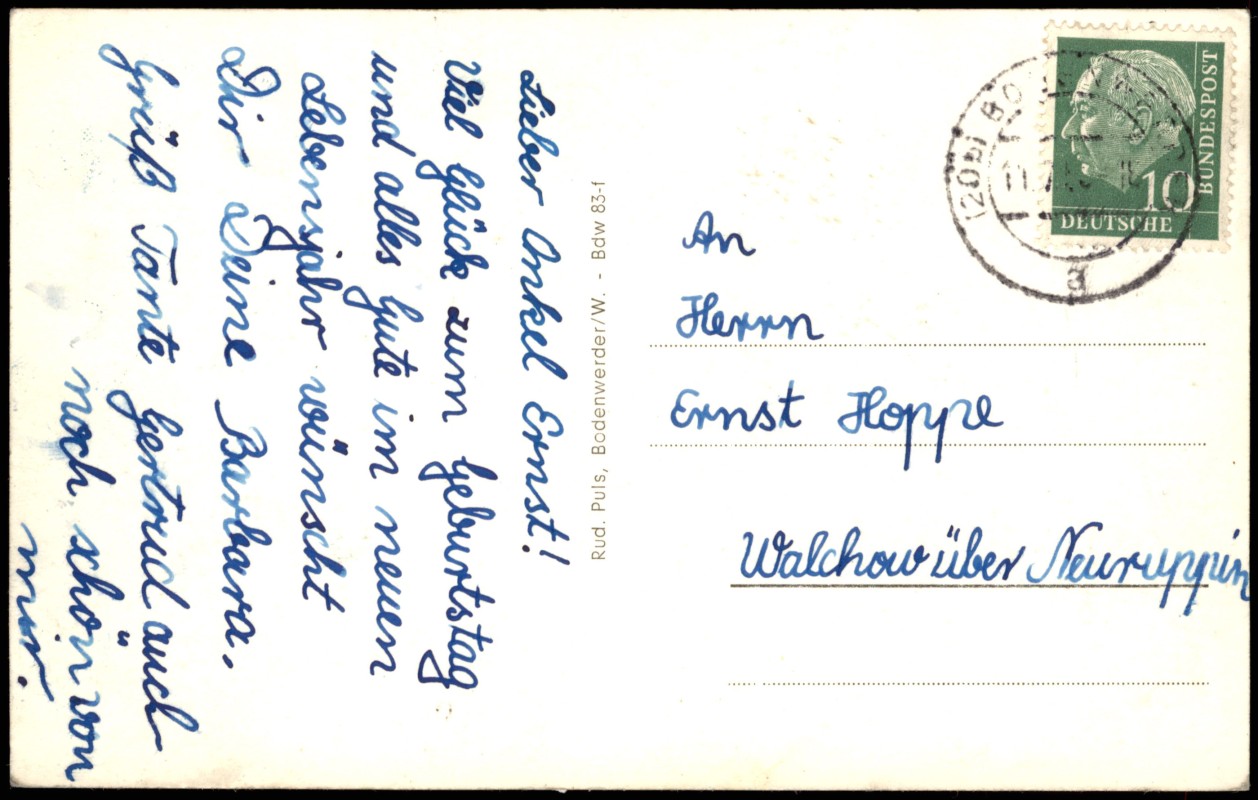 Lieber Onkel Ernst!
Viel Glück zum Geburtstag
und alles Gute im neuen
Lebensjahr wünscht
Dir Deine Barbara.
Grüß Tante Gertrud auch
noch schön von
mir.
Rud. Puls, Bodenwerder/W. - Bdw 83-f
BUNDESPOST
10
DEUTSCHE
(20b) BO
a
An
Herrn
Ernst Hoppe
Walchow über Neuruppin